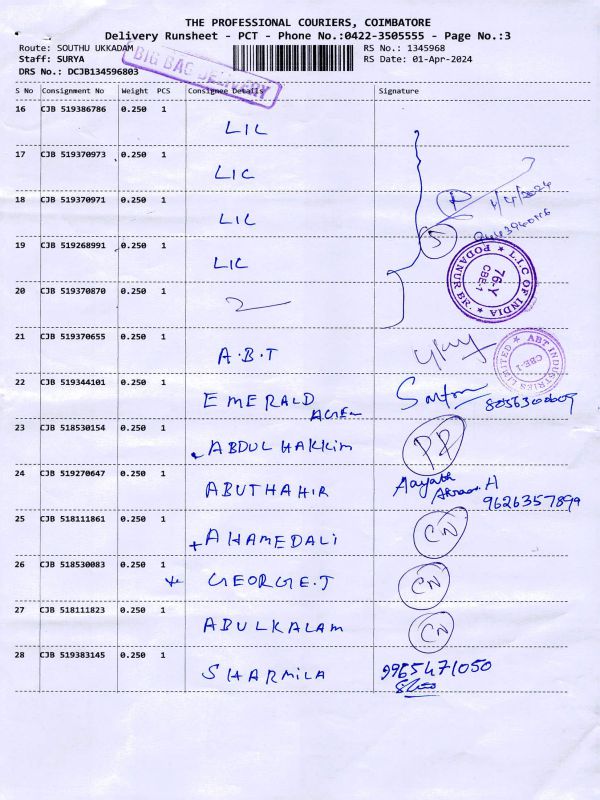 THE PROFESSIONAL COURIERS, COIMBATORE
Delivery Runsheet - PCT - Phone No.:0422-3505555 - Page No.:3
Route: SOUTHU UKKADAM
RS No.: 1345968
Staff: SURYA
RS Date: 01-Apr-2024
DRS No.: DCJB134596803
BIG BAG DELIVERY
S No Consignment No Weight PCS Consignee Details Signature
16 CJB 519386786 0.250 1 LIC
17 CJB 519370973 0.250 1 LIC
18 CJB 519370971 0.250 1 LIC
1/4/2024
19 CJB 519268991 0.250 1 LIC
5
L.I.C OF INDIA
PODANUR BR.
76-Y
CBE-1
20 CJB 519370870 0.250 1
21 CJB 519370655 0.250 1 A.B.T
ABT INDUSTRIES LIMITED
CBE-1
22 CJB 519344101 0.250 1 EMERALD
23 CJB 518530154 0.250 1 ABDUL HAKKIM
24 CJB 519270647 0.250 1 ABUTHAHIR
Aayath
H
9626357899
25 CJB 518111861 0.250 1 AHAMEDALI CN
26 CJB 518530083 0.250 1 GEORGE.J CN
27 CJB 518111823 0.250 1 ABULKALAM CN
28 CJB 519383145 0.250 1 SHARMILA 9965471050